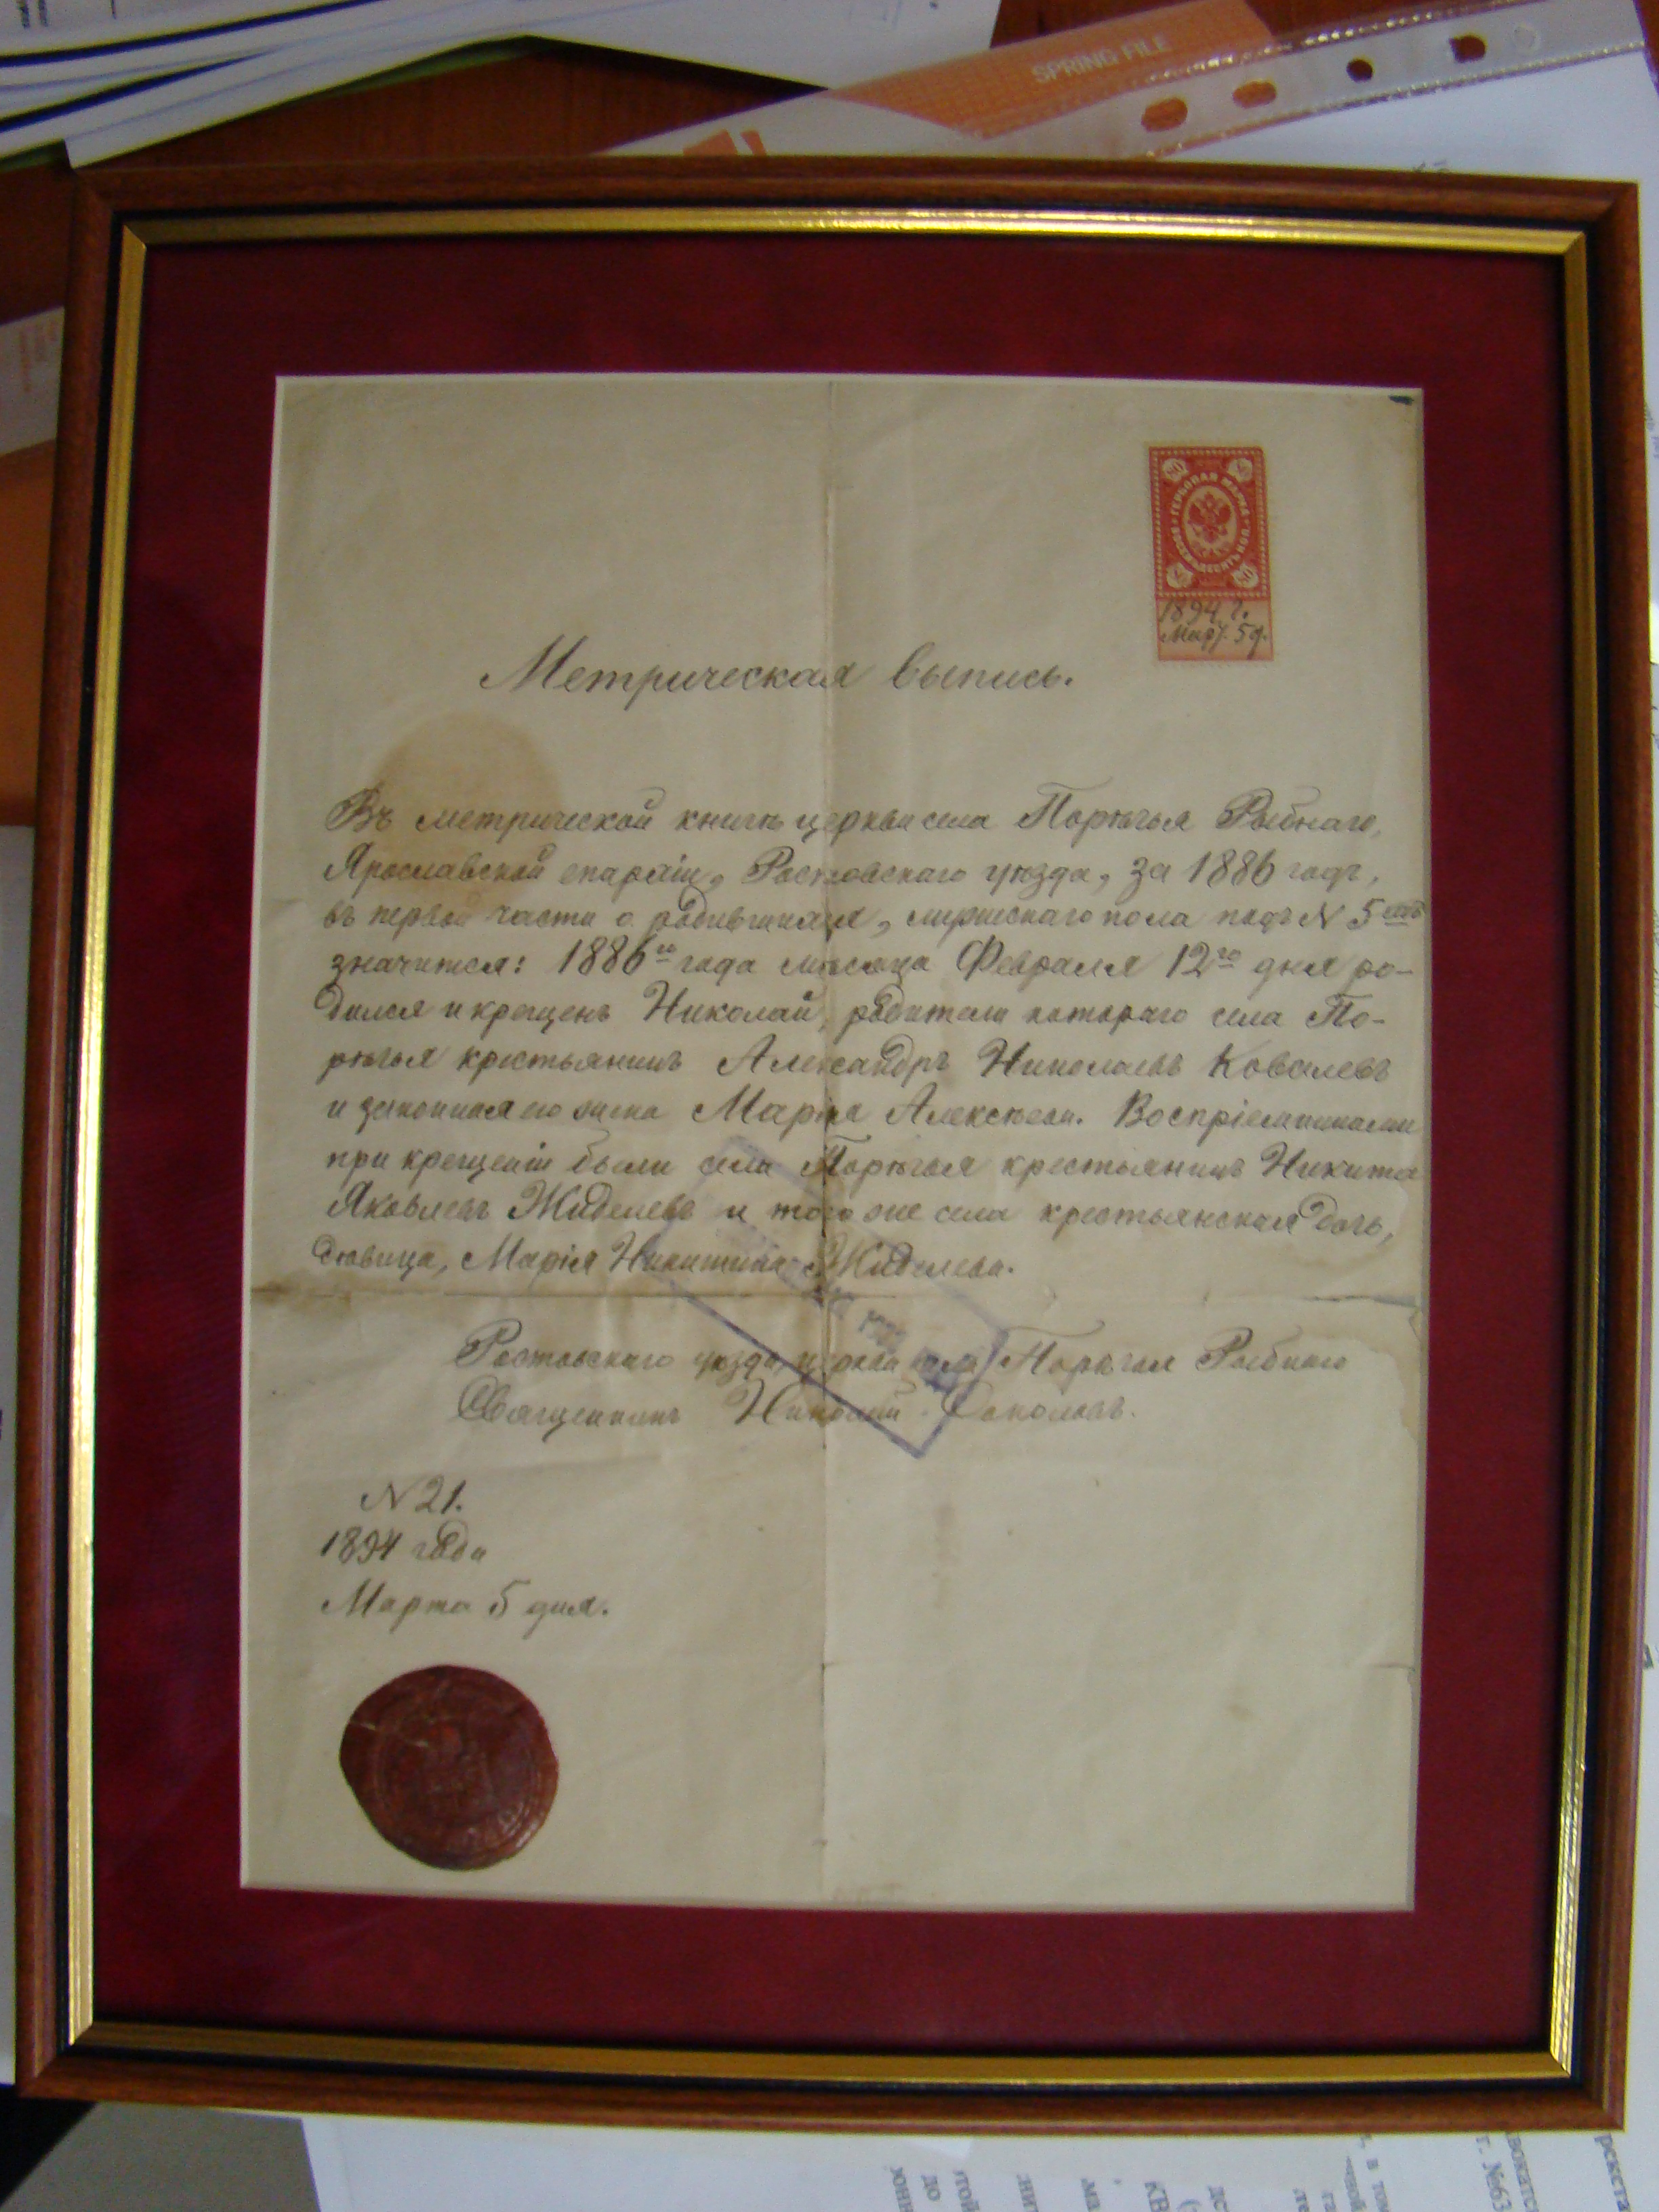 SPRING FILE
ГЕРБОВАЯ МАРКА
ВОСЕМЬДЕСЯТЪ КОП.
80
80
1894 г.
Март. 5 д.
Метрическая выпись.
Въ метрической книгѣ церкви села Порѣчья Рыбнаго,
Ярославской епархіи, Ростовскаго уѣзда, за 1886 годъ,
въ первой части о родившихся, мужескаго пола подъ N 5
значится: 1886го года мѣсяца Февраля 12го дня ро-
дился и крещенъ Николай, родители котораго села По-
рѣчья крестьянинъ Александръ Николаевъ Ковалевъ
и законная его жена Марія Алексѣева. Воспріемниками
при крещеніи были села Порѣчья крестьянинъ Никита
Яковлевъ Жиделевъ и того же села крестьянская дочь,
дѣвица, Марія Никитина Жиделева.
Ростовскаго уѣзда, церкви села Порѣчья Рыбнаго
Священникъ Николай Соколовъ.
N 21.
1894 года
Марта 5 дня.